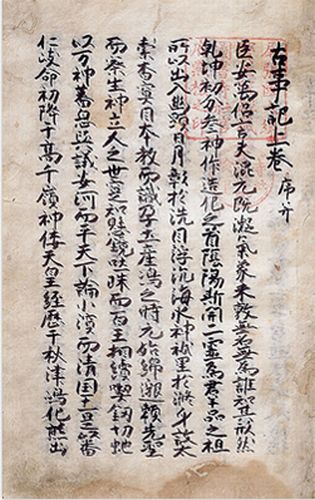 古事記上卷 序并
臣安萬侶言夫混元既凝氣象未效無名無為誰知其形然
乾坤初分叅神作造化之首陰陽斯開二靈為群品之祖
所以出入幽顯日月彰於洗目浮沉海水神祇呈於滌身故太
素杳冥因本教而識孕土產嶋之時元始綿邈賴先聖
而察生神立人之世寔知懸鏡吐珠而百王相續喫釼切蛇
以万神蕃息與議安河而平天下論小濱而清国土是以番
仁岐命初降于高千嶺神倭天皇經歷于秋津嶋化熊出